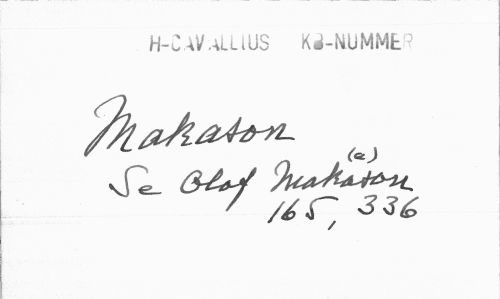 H-CAVALLIUS KB-NUMMER
Makason
(e)
Se Olof Makason
165, 336